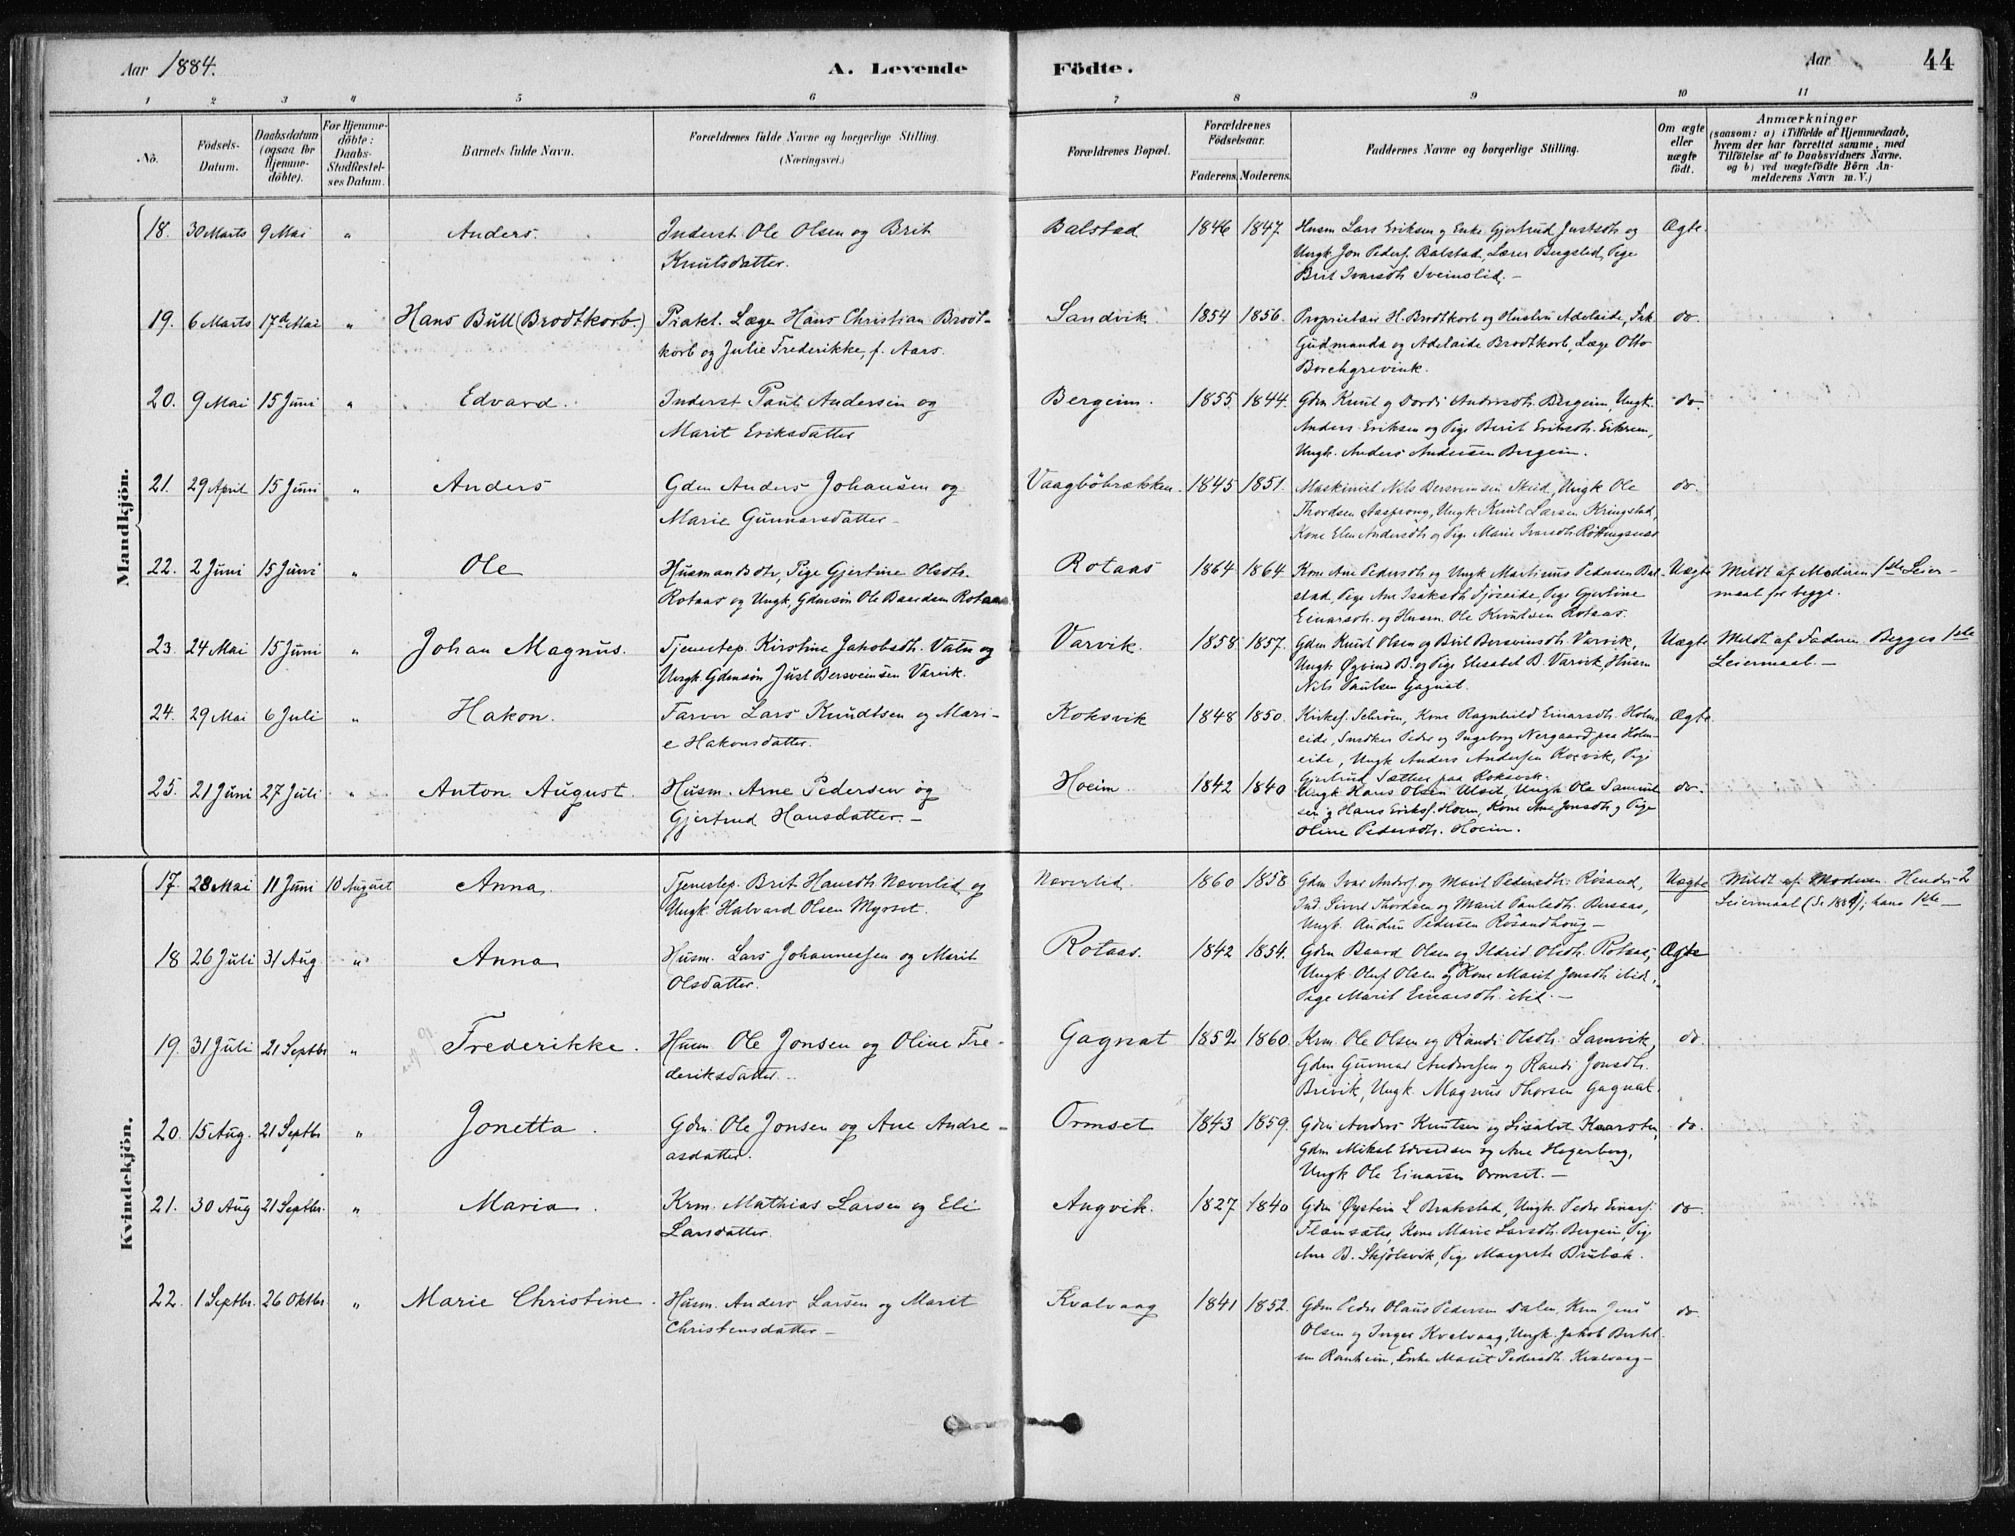 Aar 1884. A. Levende Födte. Aar 44
1 2 3 4 5 6 7 8 9 10 11
No.
Födsels-Datum.
Daabsdatum (ogsaa for Hjemme-döbte).
For Hjemme-döbte: Daabs-Stadfæstel-ses Datum.
Barnets fulde Navn.
Forældrenes fulde Navne og borgerlige Stilling. (Næringsvei.)
Forældrenes Bopæl.
Forældrenes Födselsaar.
Faderens. Moderens.
Faddernes Navne og borgerlige Stilling.
Om ægte eller uægte födt.
Anmærkninger
(saasom: a) i Tilfælde af Hjemmedaab,
hvem der har forrettet samme, med
Tilföielse af to Daabsvidners Navne,
og b) ved uægtefödte Börn An-
melderens Navn m. V.)
Mandkjön.
18. 30 Marts 9 Mai " Anders. Inderst Ole Olsen og Brit Balstad 1846 1847. Husm Lars Eriksen og Enke Gjertrud Justsdtr og Ægte.
Knutsdatter. Ungk Jon Peders. Balstad, Lærer Bergslid, Pige
Brit Ivarsdtr Sveinslid.-
19. 6 Marts 17de Mai " Hans Bull (Brodtkorb.) Prakt. Læge Hans Christian Brodt- Sandvik 1854 1856. Proprietair H. Brodtkorb og Hustru Adelaide, Frk. do.
korb og Julie Frederikke, f. Aars. Gudmunda og Adelaide Brodtkorb, Læge Otto
Borchgrevink.
20. 9 Mai 15 Juni " Edvard. Inderst Paul Andersen og Bergeim. 1855. 1844. Gdm Knut og Dordi Andersdtr. Bergeim, Ungk. do.
Marit Eriksdatter Anders Eriksen og Pige Berit Eriksdtr. Eikrem,
Ungk. Anders Andersen Bergeim.
21. 29 April 15 Juni " Anders Gdm Anders Johansen og Vaagböbrækken. 1845 1851. Maskinist Nils Bersveinsen Skud, Ungk Ole do.
Marie Gunnarsdatter- Thordsen Aasprong, Ungk Knut Larsen Kringstad,
Kone Elen Andersdtr og Pige Marie Ivarsdtr. Röttingsnes
22. 2 Juni 15 Juni " Ole Husmandsdtr, Pige Gjertine Olsdtr. Rotaas 1864 1864 Kone Ane Pedersdtr og Ungk Martinus Pedersen Bal- Uægte Meldt af Moderen 1ste Leier-
Rotaas og Ungk, Gdmsön Ole Baardsen Rotaas stad, Pige Ane Isaksdtr Sjöseide, Pige Gjertine maal for begge.
Einarsdtr. og Husm. Ole Knutsen Rotaas.
23. 24 Mai 15 Juni " Johan Magnus. Tjenestep. Kirstine Jakobsdtr. Vatn og Varvik. 1858 1857. Gdm Knut Olsen og Brit Bersveinsdtr. Varvik, Uægte Meldt af Faderen Begges 1ste
Ungk. Gdmsön Just Bersveinsen Varvik. Ungk Øyvind B. og Pige Elisabet B. Varvik, Husm Leiermaal.-
Nils Paulsen Gagnat.
24. 29 Mai 6 Juli " Hakon. Farver Lars Knudtsen og Mari- Koksvik 1848 1850. Kirkes. Schröen, Kone Ragnhild Einarsdtr. Holms- Ægte
e Hakonsdatter. eide, Snedker Peder og Ingeborg Nergaard paa Holm-
eide, Ungk Anders Andersen Koksvik, Pige
Gjertrud Sætter paa Koksvik.
25. 21 Juni 27 Juli " Anton August. Husm. Arne Pedersen og Hoeim. 1842 1840 Ungk Hans Olsen Ulset, Ungk Ole Samuel do.
Gjertrud Hansdatter.- sen og Hans Eriks. Hoem, Kone Ane Jonsdtr og Pige
Oline Pedersdtr. Hoeim.
Kvindekjön.
17. 28 Mai 11 Juni 10 August Anna. Tjenestep. Brit Hansdtr Neverlid og Neverlid. 1860 1858 Gdm Ivar Anders. og Marit Pedersdtr. Rösand, Uægte Meldt af Moderen. Hendes 2
Ungk. Halvard Olsen Myrset. Ind. Sivert Thordsen og Marit Paulsdtr. Bersaas, Leiermaal; hans 1ste-
Ungk. Anders Pedersen Rösandhaug-
18 26 Juli 31 Aug. " Anna Husm. Lars Johannessen og Marit Rotaas. 1842 1854. Gdm Baard Olsen og Ildrid Olsdtr. Rotaas, Ægte
Olsdatter. Ungk Oluf Olsen og Kone Marit Jonsdtr ibid,
Pige Marit Einarsdtr. ibid.-
19. 31 Juli 21 Septbr " Frederikke. Husm. Ole Jonsen og Oline Fre- Gagnat 1852 1860. Krm. Ole Olsen og Randi Olsdtr. Lamvik, do.
deriksdatter. Gdm Gunnar Andersen og Randi Jonsdtr.
Brevik, Ungk. Magnus Thorsen Gagnat.
20. 15 Aug. 21 Septbr " Jonetta. Gdm. Ole Jonsen og Ane Andre- Ormset 1843 1859. Gdm Anders Knutsen og Lisabet Kaarsten, do.
asdatter. Gdm Mikal Edvardsen og Ane Hegerberg,
Ungk Ole Einarsen Ormset.-
21. 30 Aug 21 Septbr. " Maria. Krm. Mathias Larsen og Eli Angvik. 1827 1840 Gdm Øystein L Brakstad, Ungk. Peder Einars. do
Larsdatter. Flemsæter, Kone Marie Larsdtr. Bergeim, Pige
Ane B. Skjölsvik, Pige Margrete Brubak.
22. 1 Septbr. 26 Oktbr " Marie Christine. Husm. Anders Larsen og Marit Kvalvaag 1841 1852. Gdm Peder Olaus Pedersen Dalen, Krm Jens do.
Christensdatter- Olsen og Inger Kvalvaag, Ungk. Jakob Bertel-
sen Ranheim, Enke Marit Pedersdtr. Kvalvaag-